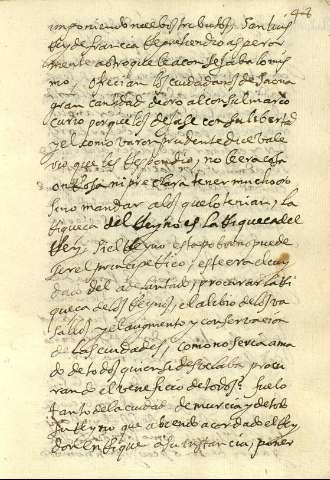 48
imponiendo nuebos tributos, San luis
Rey de francia Reprehendio asperar
mente a otro que le aconsejaba lo mis
mo. ofrecian los ciudadanos de
gran cantidad de oro al consul marco
curio porque los dejase con su libertad
y el como varon prudente dice Vale
rio que les Respondio, no le era cosa
onrrosa ni preclara tener mucho oro
sino mandar a los que lo tenian, la
Riqueça del Reyno es la Riqueça del
Rey, si el Reyno esta pobre no puede
ser el principe Rico, este era el cuy
dado del adelantado, procurar la Ri
queça de los Reynos, el alivio de los va
sallos y el augmento y conservacion
de las ciudades, como no sera ama
do de todos quien se desvelaba procu
rando el beneficio de todos?
tanto de la ciudad de murcia y de todo
su Reyno que abiendo acordado el Rey
don enrrique a su instancia, poner